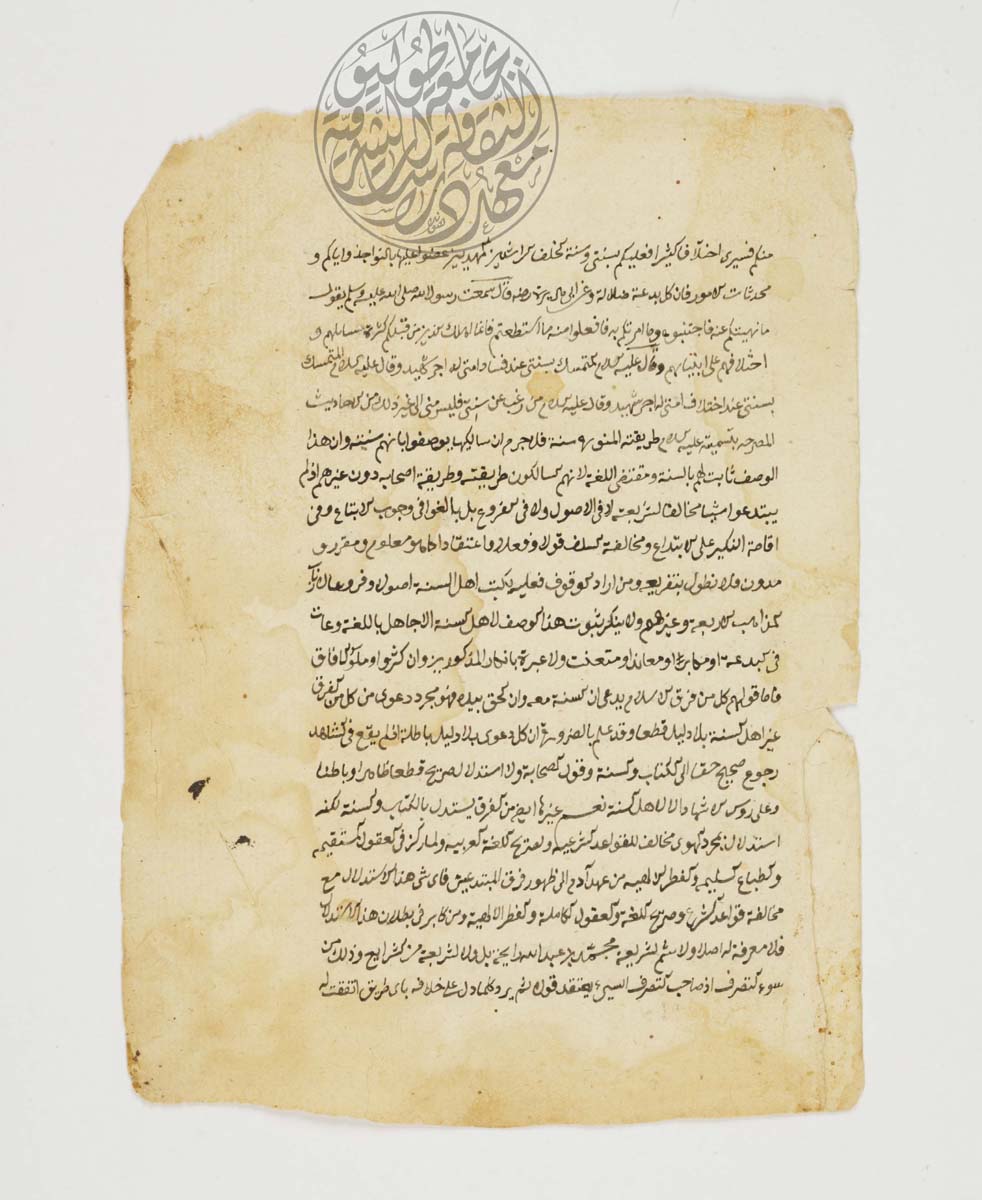 منكم فسيرى اختلافا كثيرا فعليكم بسنتي وسنة الخلفا الراشدين المهديين عضوا عليها بالنواجذ واياكم و
محدثات الامور فان كل بدعة ضلالة وعن ابي هريرة رضه قال سمعت رسول الله صلى الله عليه وسلم يقول
ما نهيتكم عنه فاجتنبوه وما امرتكم به فافعلوا منه ما استطعتم فانما اهلك الذين من قبلكم كثرة مسايلهم و
اختلافهم على انبيائهم وقال عليه السلام المتمسك بسنتي عند فساد امتي له اجر شهيد وقال عليه السلام المتمسك
بسنتي عند اختلاف امتي له اجر شهيد وقال عليه السلام من رغب عن سنتي فليس مني الى غير ذلك من الاحاديث
المصرحه بتسميته عليه السلام طريقته المنورة سنة فلا جرم ان سالكيها يوصفوا بانهم سنيته وان هذا
الوصف ثابت لهم بالسنة ومقتضى اللغة لانهم سالكون طريقته وطريقة اصحابه دون غيرهم اذ لم
يبتدعوا شيئا مخالفا لشريعته لا في الاصول ولا في الفروع بل بالغوا في وجوب الاتباع وفي
اقامة النكير على الابتداع ومخالفة السلف قولا وفعلا واعتقادا كما هو معلوم ومقرر و
مدون فلا نطول بتفريعه ومن اراد الوقوف فعليه بكتب اهل السنة اصولا وفروعا
المذاهب الاربعة وغيرهم ولا ينكر ثبوت هذا الوصف لاهل السنة الا جاهل باللغة وعات
في البدعة او مكابر او معاند او متعنت ولا عبرة بانكار المذكورين وان كثروا وملؤا الافاق
فاما قولهم كل من فرق الاسلام يدعي ان السنة معه وان الحق بيده فهو مجرد دعوى من كل من الفرق
غير اهل السنة بلا دليل قطعا وقد علم بالضرورة ان كل دعوى بلا دليل باطلة اذ لم يقع في المشاهد
رجوع صحيح حقا الى الكتاب والسنة وقول الصحابة ولا استدلال صريح قطعا ظاهرا وباطنا
وعلى روس الاشهاد الا لاهل السنة نعم غيرها ايض من الفرق يستدل بالكتاب والسنة لكنه
استدلال بمجرد الهوى مخالف للقواعد الشرعيه ولصريح اللغة العربيه ولما ركز في العقول المستقيمه
والطباع السليمه والفطر الالهيه من عهد آدم الى ظهور فرق المبتدعين فاي شي هذا الاستدلال مع
مخالفة قواعد الشرع وصريح اللغة والعقول الكاملة والفطر الالهية ومن كابر في بطلان هذا الاستدلال
فلا معرفة له اصلا ولا شم لشريعة محمد بن عبدالله رايحة بل ولا لشريعة من الشرايع وذلك من
سوء التصرف اذ صاحب التصرف السيء يعتقد قولا ثم يرد كلما دل على خلافه باي طريق اتفقت له